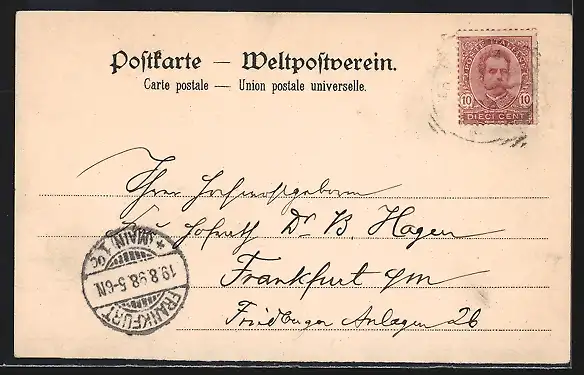 Postkarte — Weltpostverein.
Carte postale — Union postale universelle.
POSTE ITALIANE
10 10
DIECI CENT
Ihrer Hochwohlgeboren
Hofrath Dr B. Hagen
Frankfurt a/m
Friedberger Anlagen 26
FRANKFURT
19.8.98.5-6N.
(MAIN) 1.